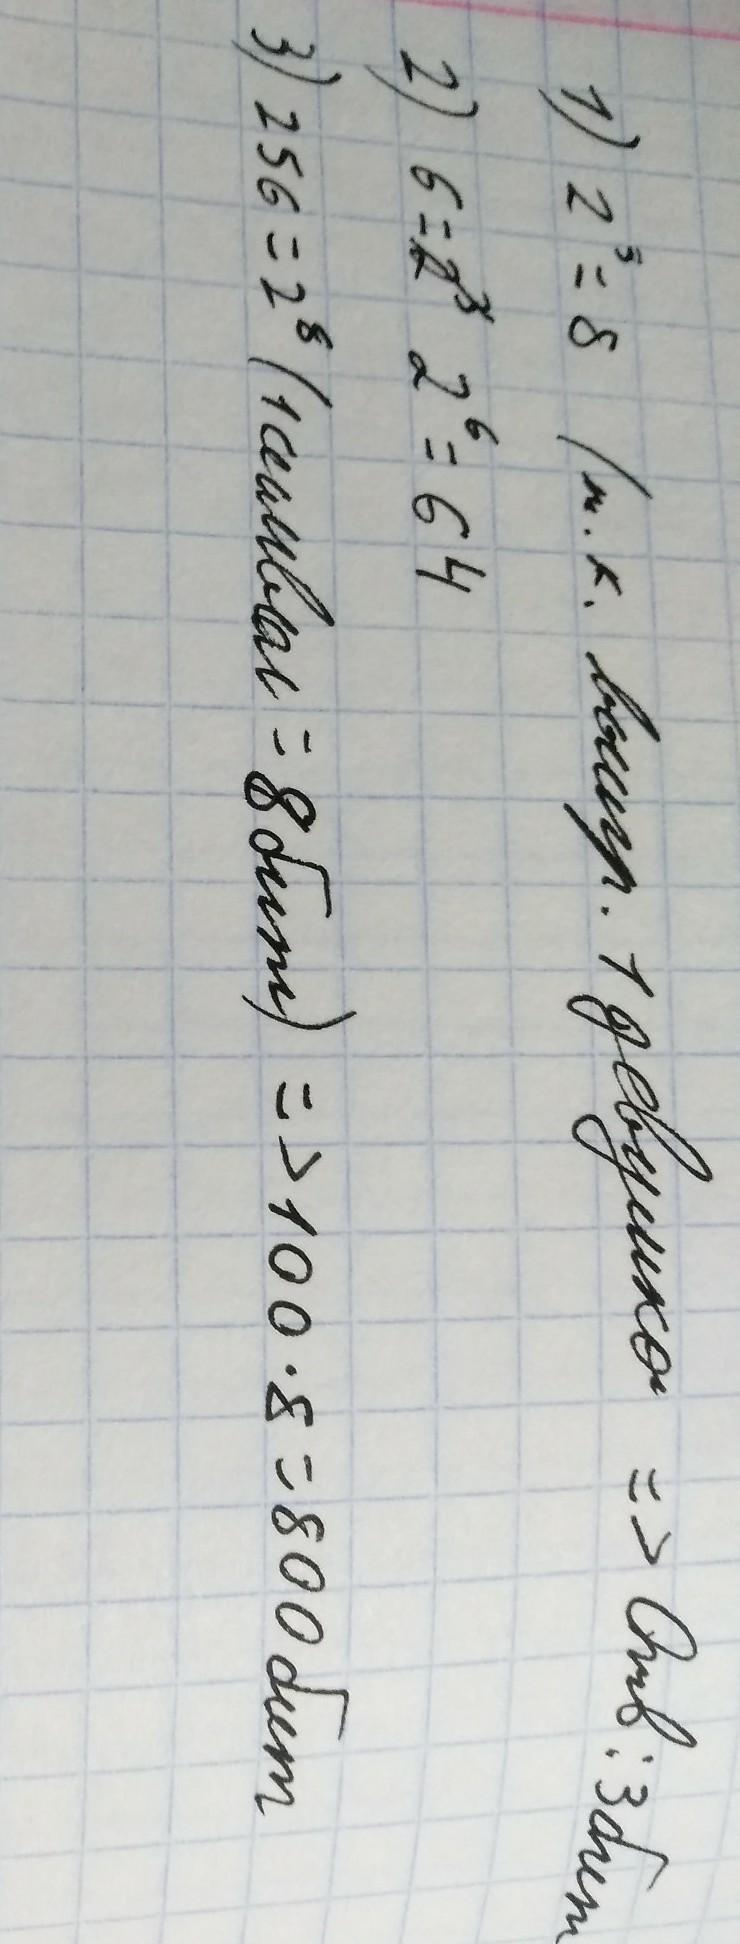 1) 2³ = 8 (т.к. выигр. 1 девушка => Отв: 3 бит
2) 6 = 2³ 2⁶ = 64
3) 256 = 2⁸ (1 символ = 8 бит) => 100 · 8 = 800 бит